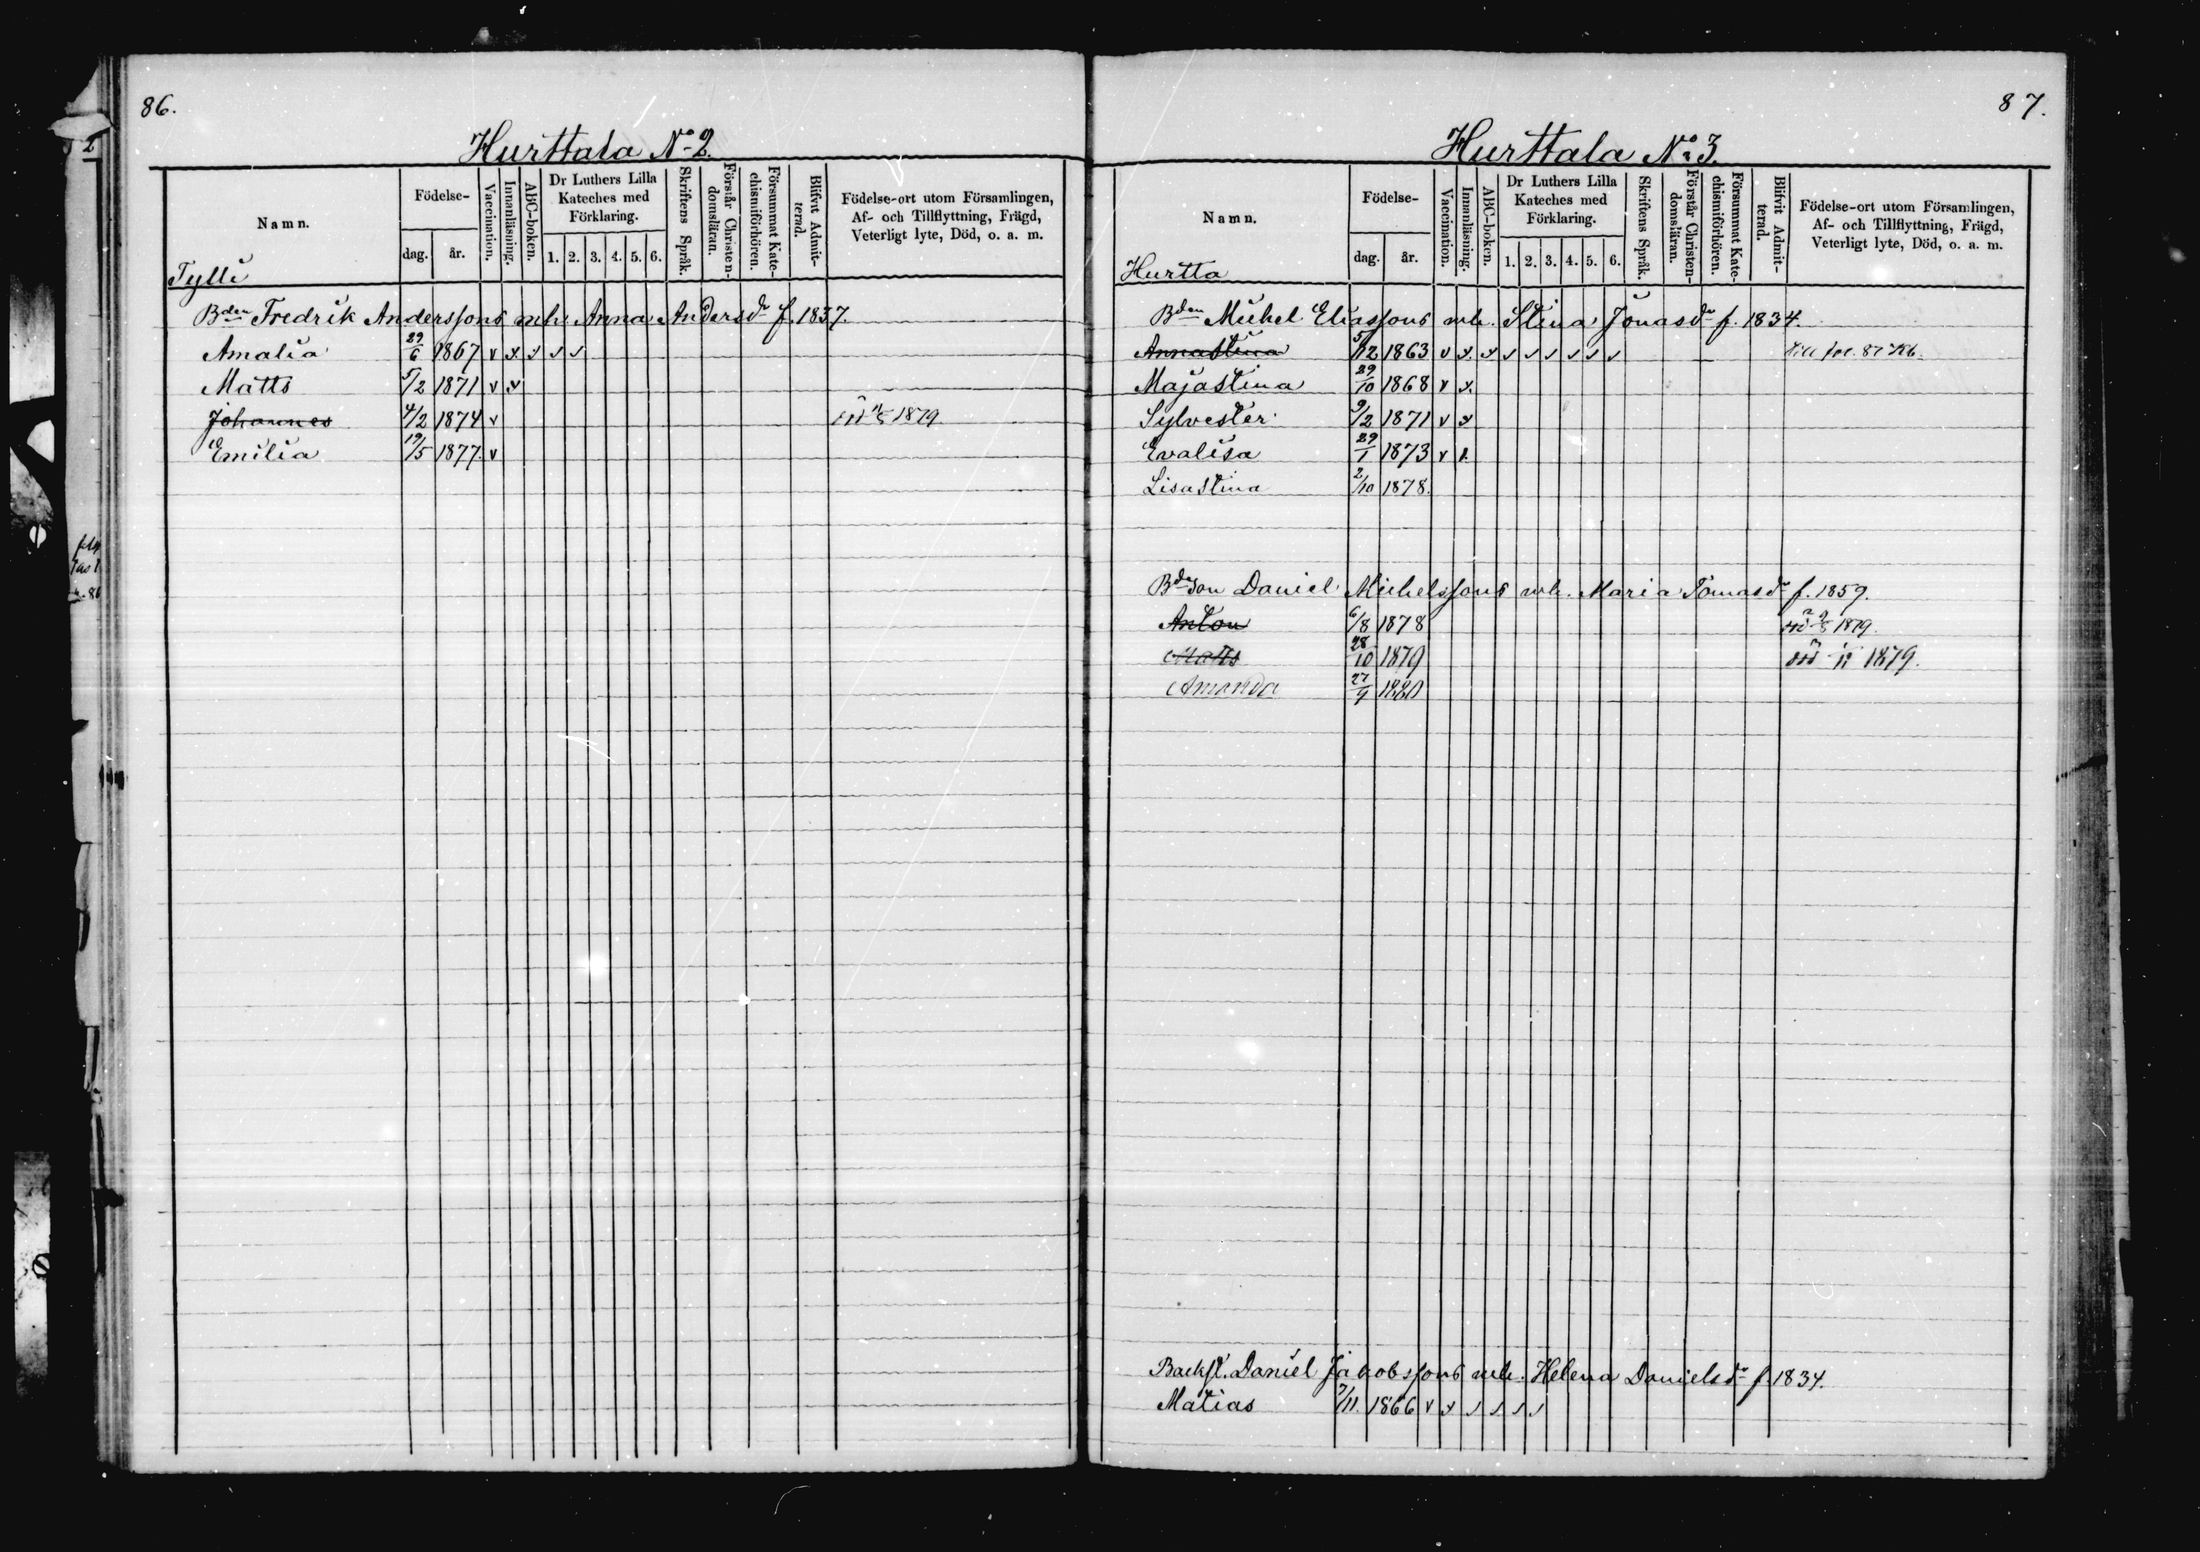 86.
Hurttala No 2.
Namn.
Födelse-
dag.
år.
Vaccination.
Innanläsning.
ABC-boken.
Dr Luthers Lilla
Kateches med
Förklaring.
1. 2. 3. 4. 5. 6.
Skriftens Språk.
Förstår Christen-
domsläran.
Försummat Kate-
chismiförhören.
Blifvit Admit-
terad.
Födelse-ort utom Församlingen,
Af- och Tillflyttning, Frägd,
Veterligt lyte, Död, o. a. m.
Tylli
Bden Fredrik Anderssons mh. Anna Andersdr f. 1837.
Amalia 29/6 1867 v x ✓ ✓ ✓
Matts 5/2 1871 v x
Johannes 4/2 1874 v död 1879.
Emilia 19/5 1877. v
87.
Hurttala No 3.
Namn.
Födelse-
dag.
år.
Vaccination.
Innanläsning.
ABC-boken.
Dr Luthers Lilla
Kateches med
Förklaring.
1. 2. 3. 4. 5. 6.
Skriftens Språk.
Förstår Christen-
domsläran.
Försummat Kate-
chismiförhören.
Blifvit Admit-
terad.
Födelse-ort utom Församlingen,
Af- och Tillflyttning, Frägd,
Veterligt lyte, Död, o. a. m.
Hurtta
Bden Mickel Eliassons mh. Stina Jönasdr f. 1834.
Annastina 5/12 1863 v x. x ✓ ✓ ✓ ✓ ✓ ✓ Till fol. 87
Majastina 29/10 1868 v x.
Sylvester 9/2 1871 v x
Evalisa 29/1 1873 v
Lisastina 2/10 1878.
Bdeson Daniel Mickelssons mh. Maria Tomasdr f. 1859.
Anton 6/8 1878 död 1879.
Matts 28/10 1879 död 1879.
Amanda 27/9 1880
Backst. Daniel Jakobssons mh. Helena Danielsdr f. 1834.
Matias 7/11. 1866 v x ✓ ✓ ✓ ✓